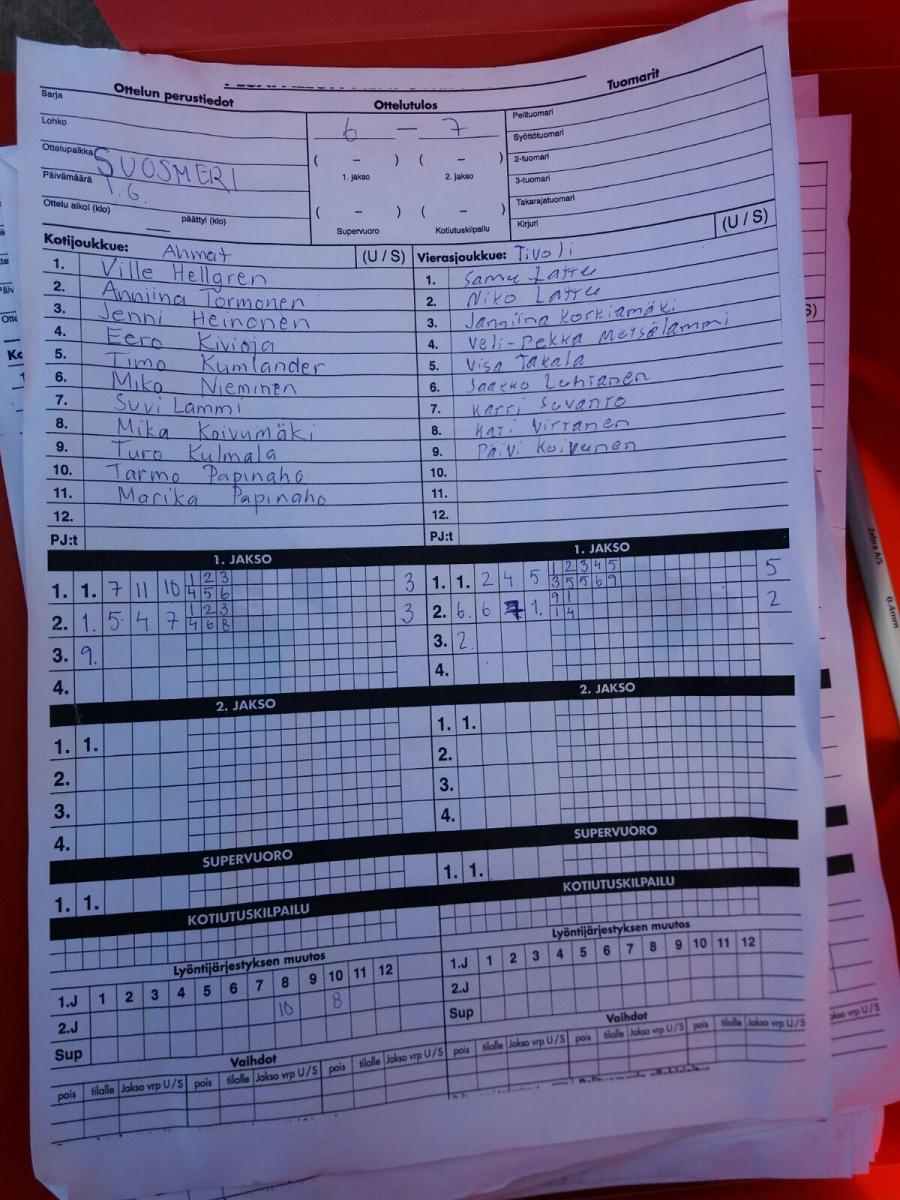 Ottelun perustiedot
Ottelutulos
Tuomarit
Sarja
Lohko
Ottelupaikka SUOSMERI
Päivämäärä 1.6.
Ottelu alkoi (klo) päättyi (klo)
6 — 7
( – ) ( – )
1. jakso 2. jakso
( – ) ( – )
Supervuoro Kotiutuskilpailu
Pelituomari
Syöttötuomari
2-tuomari
3-tuomari
Takarajatuomari
Kirjuri
(U / S)
Kotijoukkue: Ahmat (U / S)
1. Ville Hellgren
2. Anniina Tormonen
3. Jenni Heinonen
4. Eero Kivioja
5. Timo Kumlander
6. Miko Nieminen
7. Suvi Lammi
8. Mika Koivumäki
9. Turo Kulmala
10. Tarmo Papinaho
11. Marika Papinaho
12.
PJ:t
Vierasjoukkue: Tivoli
1. Samu Lattu
2. Niko Lattu
3. Janniina Korkiamäki
4. Veli-Pekka Metsälammi
5. Visa Takala
6. Jaakko Luhtanen
7. Harri Suvanto
8. Kati Virtanen
9. Päivi Koivunen
10.
11.
12.
PJ:t
1. JAKSO
1. 1. 7 11 10 1 2 3 3
4 5 6
2. 1. 5. 4 7 1 2 3 3
4 6 8
3. 9.
4.
1. JAKSO
1. 1. 2 4 5 1 2 3 4 5 5
3 5 5 6 9
2. 6. 6 1. 9 1 2
1 4
3. 2.
4.
2. JAKSO
1. 1.
2.
3.
4.
2. JAKSO
1. 1.
2.
3.
4.
SUPERVUORO
1. 1.
SUPERVUORO
1. 1.
KOTIUTUSKILPAILU
KOTIUTUSKILPAILU
Lyöntijärjestyksen muutos
1.J 1 2 3 4 5 6 7 8 9 10 11 12
2.J 10 8
Sup
Lyöntijärjestyksen muutos
1.J 1 2 3 4 5 6 7 8 9 10 11 12
2.J
Sup
Vaihdot
pois tilalle Jakso vrp U/S pois tilalle Jakso vrp U/S pois tilalle Jakso vrp U/S
Vaihdot
pois tilalle Jakso vrp U/S pois tilalle Jakso vrp U/S pois tilalle Jakso vrp U/S
Zebra A/S 0.4mm